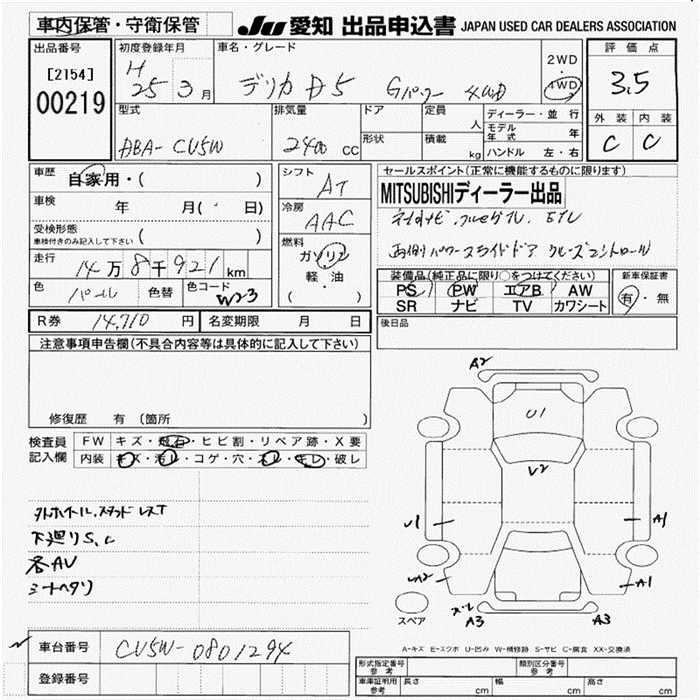 車内保管・守衛保管
JU 愛知 出品申込書 JAPAN USED CAR DEALERS ASSOCIATION
出品番号
[2154]
00219
初度登録年月
H
25 3 月
車名・グレード
デリカ D5 Gパワー 4WD
2WD
4WD
評価点
3.5
外装 内装
C C
型式
DBA-CV5W
排気量
2400 cc
ドア
形状
定員
人
積載
kg
ディーラー・並行
モデル年式 年
ハンドル 左・右
車歴
自家用・( )
車検 年 月( 日)
受検形態
車検付きのみ記入して下さい ( )
走行
14万8千921km
色 パール 色替 色コード W23
シフト
AT
冷房
AAC
燃料
ガソリン
軽・油
( )
セールスポイント(正常に機能するものに限ります)
MITSUBISHIディーラー出品
両側パワースライドドア クルーズコントロール
装備品(純正品に限り○をつけてください)
PS PW エアB AW
SR ナビ TV カワシート
新車保証書
有・無
R券 14,710 円 名変期限 月 日
後日品
注意事項申告欄(不具合内容等は具体的に記入して下さい)
修復歴 有 (箇所 )
検査員記入欄
FW キズ・飛石・ヒビ割・リペア跡・X要
内装 キズ・汚レ・コゲ・穴・スレ・キレ・破レ
下廻りS,C
各AU
シートヘタリ
A2
U1
V2
U1
A1
UA2
A1
スレ
A3
A3
スペア
A-キズ E-エクボ U-凹み W-補修跡 S-サビ C-腐食 XX-交換済
車台番号 CV5W-0801294
登録番号
形式指定番号 参考
類別区分番号 参考
車庫証明用 参考
長さ cm 幅 cm 高さ cm